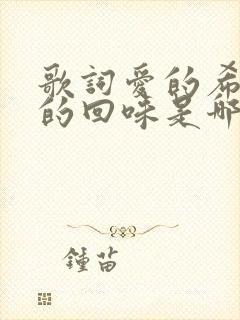 歌詞愛的希
的回味是那
鍾苗